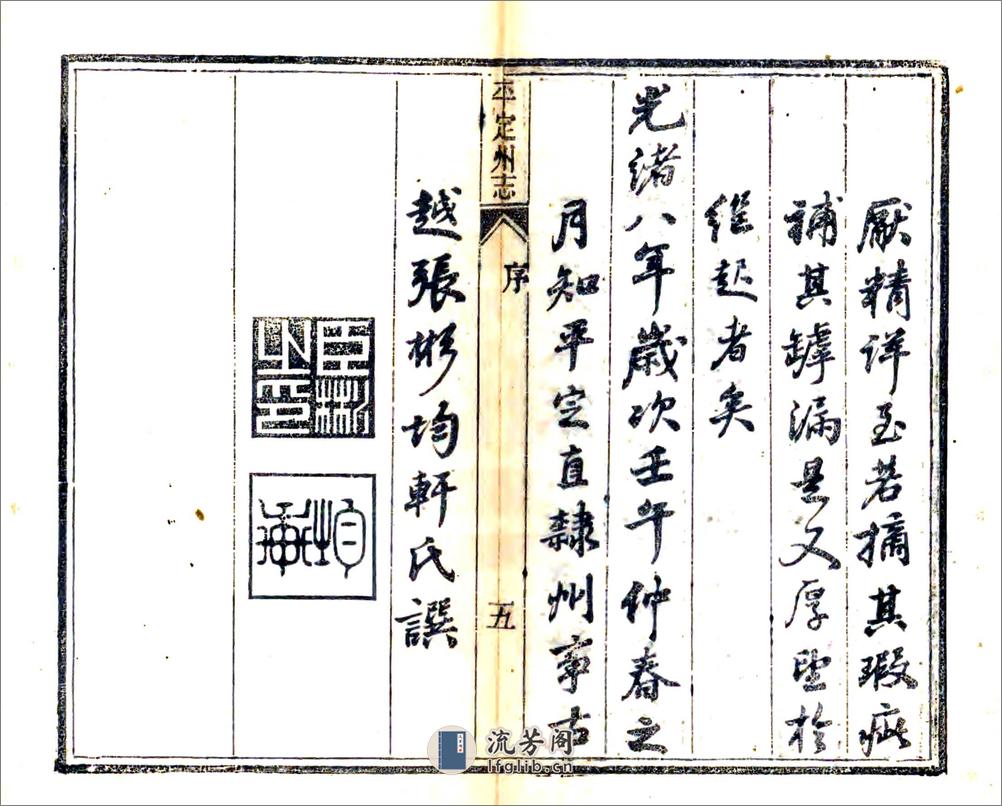 厭精詳至若摘其瑕疵
補其罅漏是又厚望於
継起者矣
光緒八年歲次壬午仲春之
月知平定直隸州事古
越張彬均軒氏譔
平定州志
序
五
臣彬之印
均軒
流芳阁
lfglib.cn